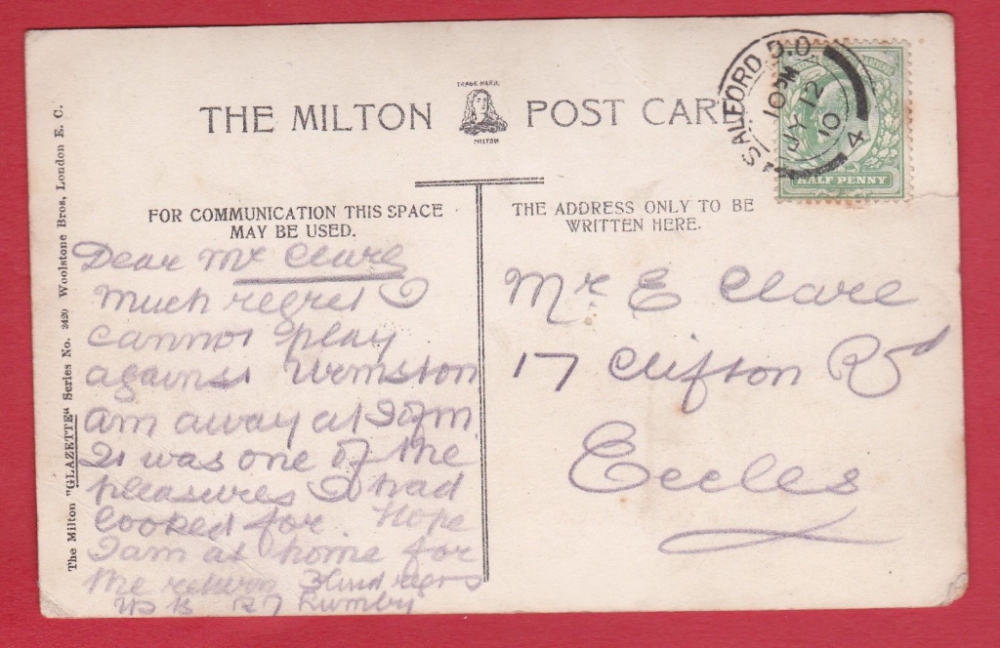 THE MILTON POST CARD
TRADE MARK
MILTON
SALFORD D.O.
10 PM
JY 12
10
4
HALF PENNY
FOR COMMUNICATION THIS SPACE
MAY BE USED.
THE ADDRESS ONLY TO BE
WRITTEN HERE.
Dear Mr Clare
Much regret I
cannot play
against Urmston
am away at I of m
It was one of the
pleasures I had
looked for Hope
I am at home for
the return Kind regds
Mr E Clare
17 Clifton Rd
Eccles
The Milton "GLAZETTE" Series No. 2420 Woolstone Bros, London E. C.